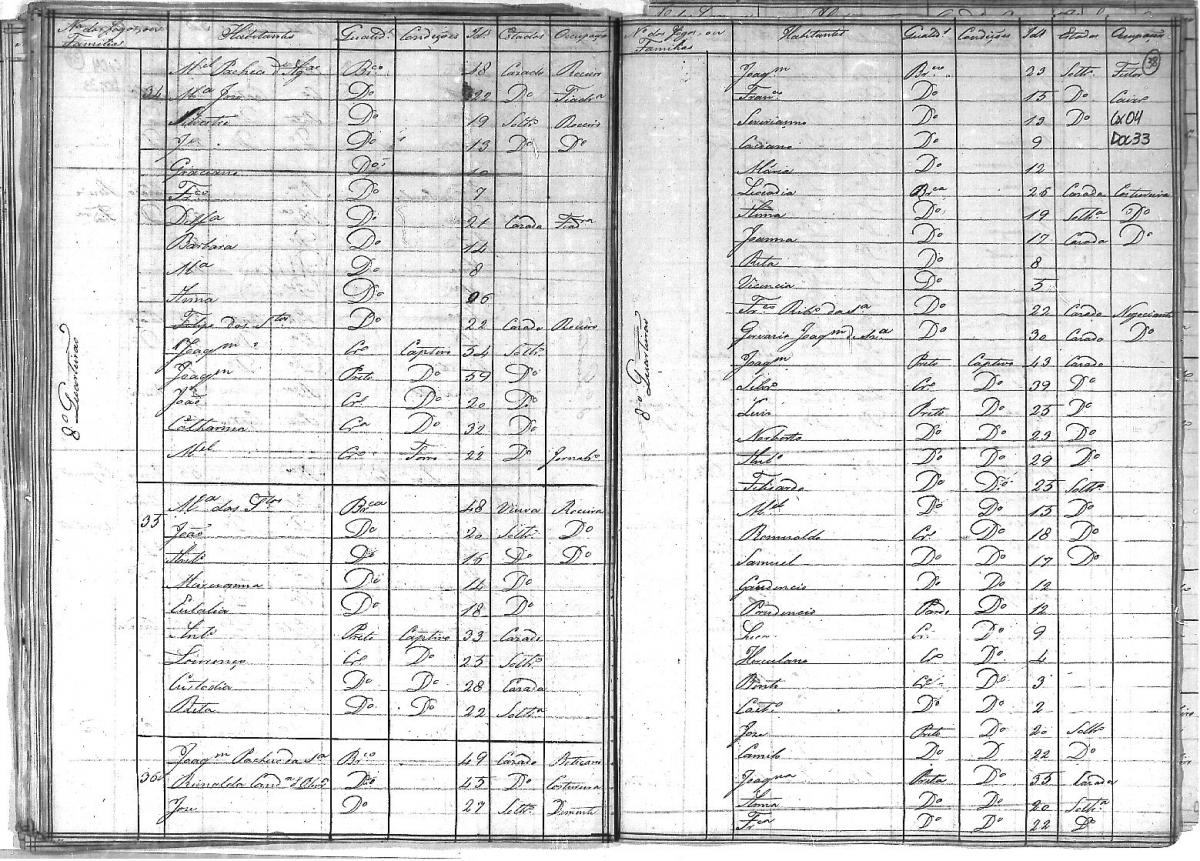 Nos dos Fogos, ou Familias Habitantes Qualid.s Condições Id.s Estados Ocupação
M.el Pacheco Br.co 48 Casado Roceiro
34 M.a José Do 22 Do Fiadr.a
Silvestre Do 19 Soltr.o Roceiro
Je Do 13 Do Do
Graciano Do 10
Fr.co Do 7
Do 21 Casada Fiad.ra
Barbara Do 14
M.a Do 8
Anna Do 06
Felipe dos S.tos Do 22 Casado Roceiro
8º Quarteirão
Joaq.m Cr.o Captivo 54 Soltr.o
Joaq.m Preto Do 59 Do
João Cr.o Do 20 Do
Catharina Cr.a Do 32 Do
M.el Cr.o Forro 22 Do Jornalr.o
35 M.a dos S.tos Br.ca 48 Viuva Roceira
João Do 20 Soltr.o Do
Ant.o Do 16 Do Do
Marianna Do 14 Do
Eulalia Do 18 Do
Ant.o Preto Captivo 33 Casado
Lourenço Cr.o Do 25 Soltr.o
Custodia Do Do 28 Casada
Rita Do Do 22 Soltr.a
36 Joaq.m Pacheco da S.a Br.co 49 Casado
Do 45 Do Costureira
Jose Do 27 Soltr.o Demente
Nos dos Fogos, ou Familias Habitantes Qualid.s Condições Id.s Estados Ocupação
38
Joaq.m Br.co 23 Soltr.o Feitor
Fran.co Do 15 Do Caixr.o
Severianno Do 13 Do
Cx 04
Doc 33
Do 9
Maria Do 12
Leocadia Br.ca 26 Casada Costureira
Anna Do 19 Soltr.a Do
Joanna Do 17 Casada Do
Rita Do 8
Vicencia Do 5
Fr.co Rib.o da S.a Do 22 Casado Negociante
8º Quarteirão
Gervazio Joaq.m de Do 30 Casado Do
Joaq.m Preto Captivo 43 Casado
Cr.o Do 39 Do
Luis Preto Do 25 Do
Norberto Do Do 23 Do
Ant.o Do Do 29 Do
Felizardo Do Do 25 Soltr.o
M.el Do Do 15 Do
Romualdo Cr.o Do 18 Do
Samuel Do Do 17 Do
Gaudencio Do Do 12
Prudencio Pardo Do 12
Cr. Do 9
Herculano Cr.o Do 4
Bento Cr.o Do 3
Caet.o Do Do 2
Jose Preto Do 20 Soltr.o
Camilo Do D 22 Do
Joaq.na Preta Do 35 Casada
Anna Do Do 20 Soltr.a
Fr.ca Do Do 22 Do